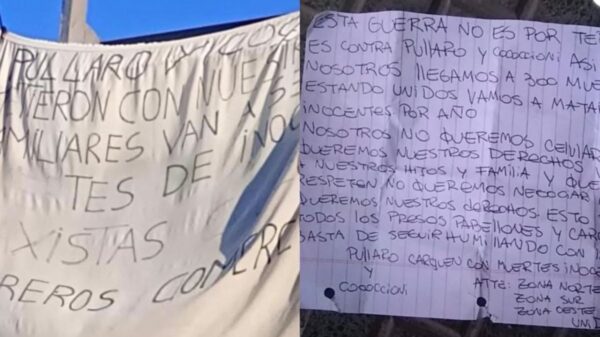 PULLARO Y COCOC
TIERON CON NUESTR
AMILIARES VAN A S
TES DE INOC
XISTAS
REROS COMERC
ESTA GUERRA NO ES POR TE
ES CONTRA PULLARO Y COCOCCIONI ASI
NOSOTROS LLEGAMOS A 300 MUE
ESTANDO UNIDOS VAMOS A MATAR
INOCENTES POR AÑO
NOSOTROS NO QUEREMOS CELULAR
QUEREMOS NUESTROS DERECHOS
NUESTROS HIJOS Y FAMILIA Y QUE
RESPETEN NO QUEREMOS NEGOCIAR
QUEREMOS NUESTROS DERECHOS. ESTO
TODOS LOS PRESOS PABELLONES Y CARC
BASTA DE SEGUIR HUMILLANDO CON
PULLARO CARGUEN CON MUERTES INOC
Y
COCOCCIONI
ATTE: ZONA NORTE
ZONA SUR
ZONA OESTE